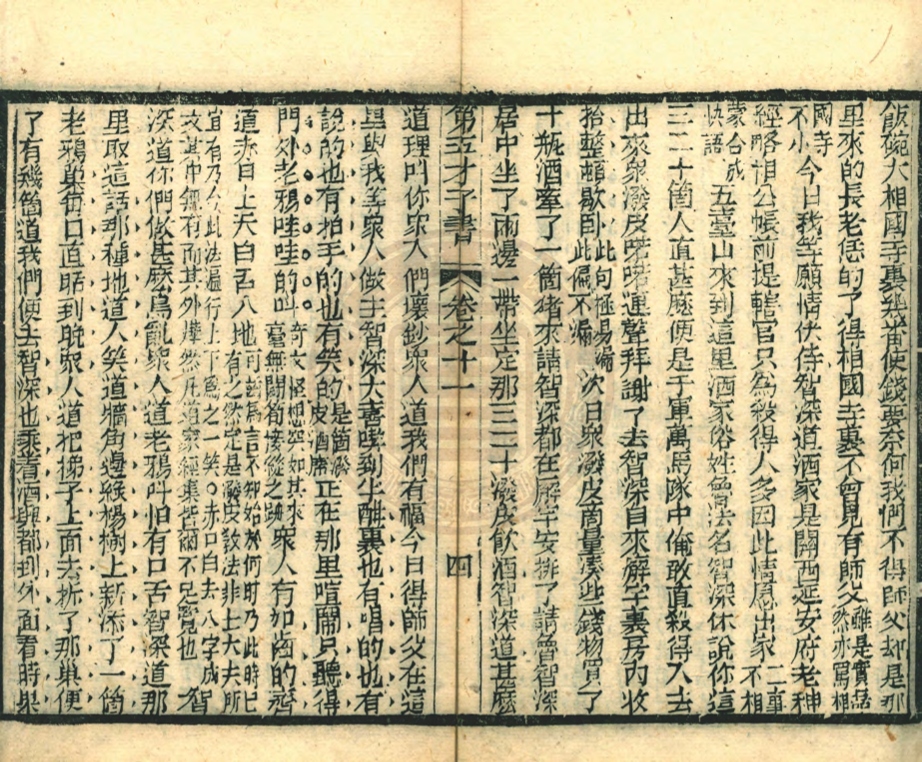 飯碗大相國寺裏幾番使錢要奈何我們不得師父却是那
里來的長老恁的了得相國寺裏不曾見有師父雖是實話然亦罵相
國寺不小今日我等願情伏侍智深道洒家是關西延安府老种
經略相公帳前提轄官只為殺得人多因此情愿出家二事不相
蒙合成快語五臺山來到這里洒家俗姓魯法名智深休說你這
三二十箇人直甚麽便是千軍萬馬隊中俺敢直殺得入去
出來衆潑皮喏喏連聲拜謝了去智深自來廨宇裏房內收
拾整頓歇臥此句極易漏此偏不漏次日衆潑皮商量湊些錢物買了
十瓶酒牽了一箇猪來請智深都在廨宇安排了請魯智深
居中坐了兩邊一帶坐定那三二十潑皮飲酒智深道甚麽
第五才子書 卷之十一 四
道理叫你衆人們壞鈔衆人道我們有福今日得師父在這
里與我等衆人做主智深大喜喫到半酣裏也有唱的也有
說的也有拍手的也有笑的是箇潑皮酒席正在那里喧鬧只聽得
門外老鴉哇哇的叫奇文怪想突如其來毫無關筍接縫之跡衆人有扣齒的齊
道赤口上天白舌入地可謂為言不雅始於何時乃此時已有之然定是潑皮教法非士大夫所
宜有乃今此法遍行上下為之一笑○赤口白舌八字成智
文其中無有而其外燁然凡道家經集皆爾不足覽也
深道你們做甚麽鳥亂衆人道老鴉叫怕有口舌智深道那
里取這話那種地道人笑道牆角邊綠楊樹上新添了一箇
老鴉巢每日直聒到晚衆人道把梯子上面去拆了那巢便
了有幾箇道我們便去智深也乘着酒興都到外面看時果